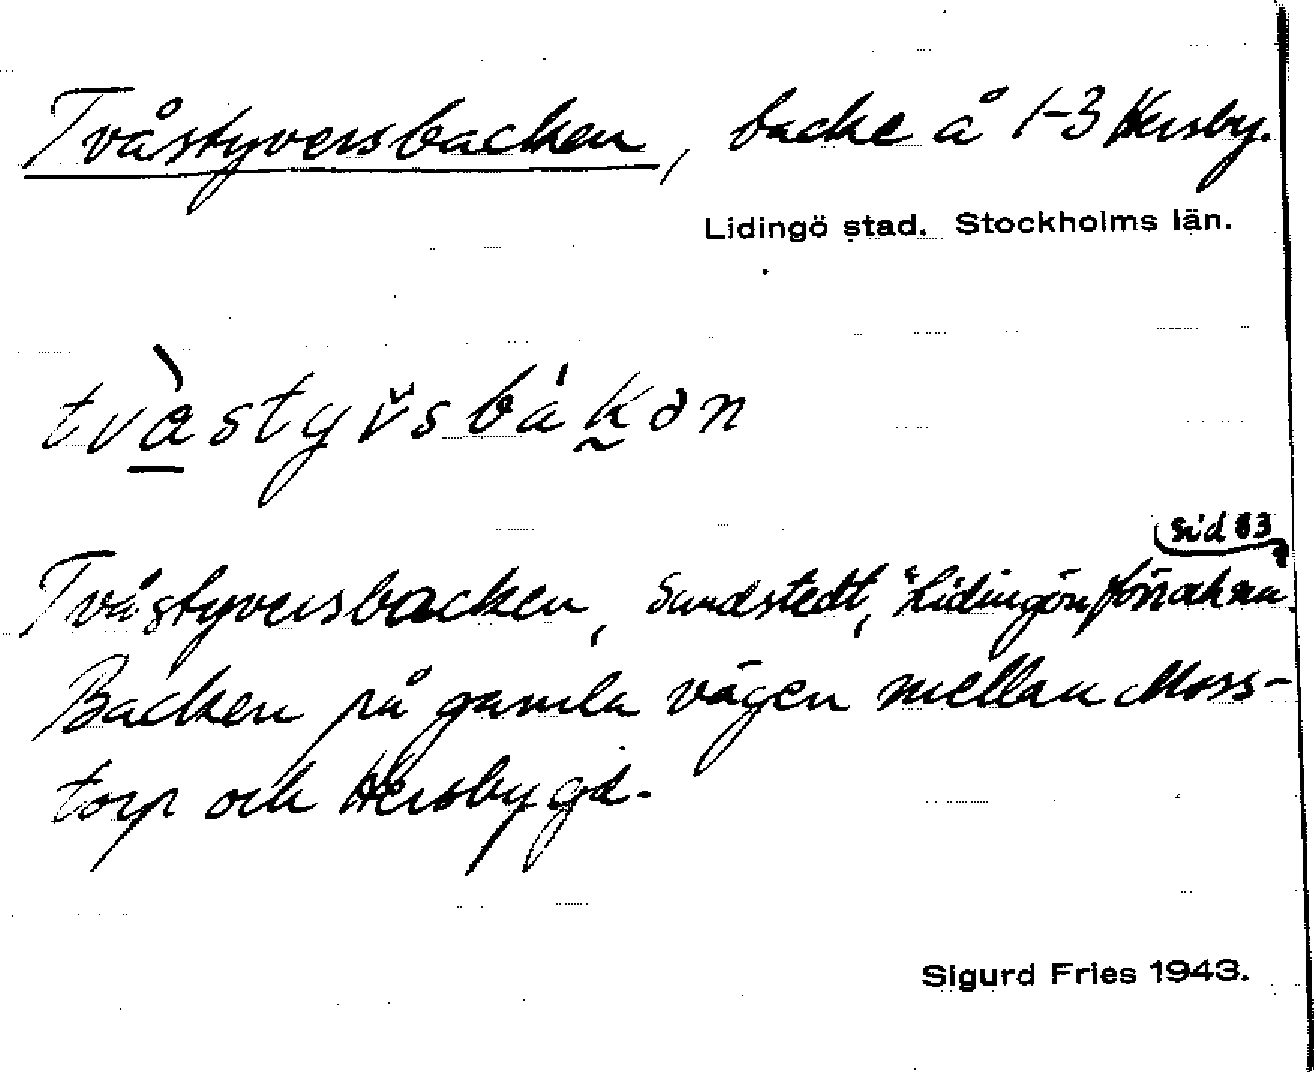 Tvåstyversbacken, backe å 1-3 Hersby.
Lidingö stad. Stockholms län.
tvàstyv̌sbákən
sid 83
Tvåstyversbacken, Sundstedt, "Lidingön förr och nu.
Backen på gamla vägen mellan Moss-
torp och Hersby gd.
Sigurd Fries 1943.